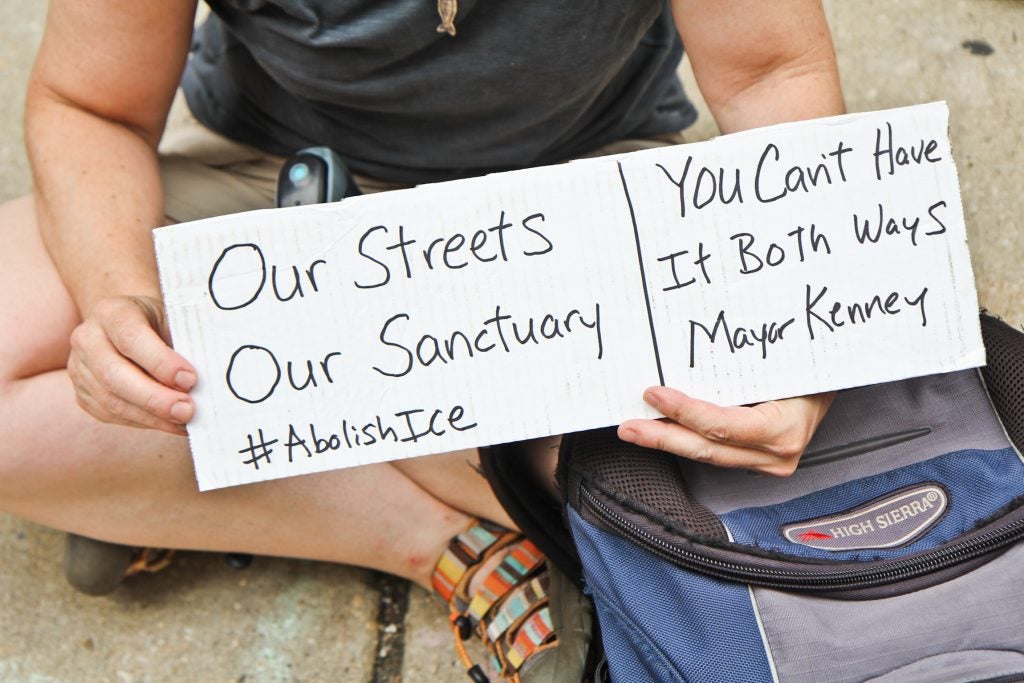 Our Streets
Our Sanctuary
#AbolishIce
You Can't Have
It Both Ways
Mayor Kenney
HIGH SIERRA®